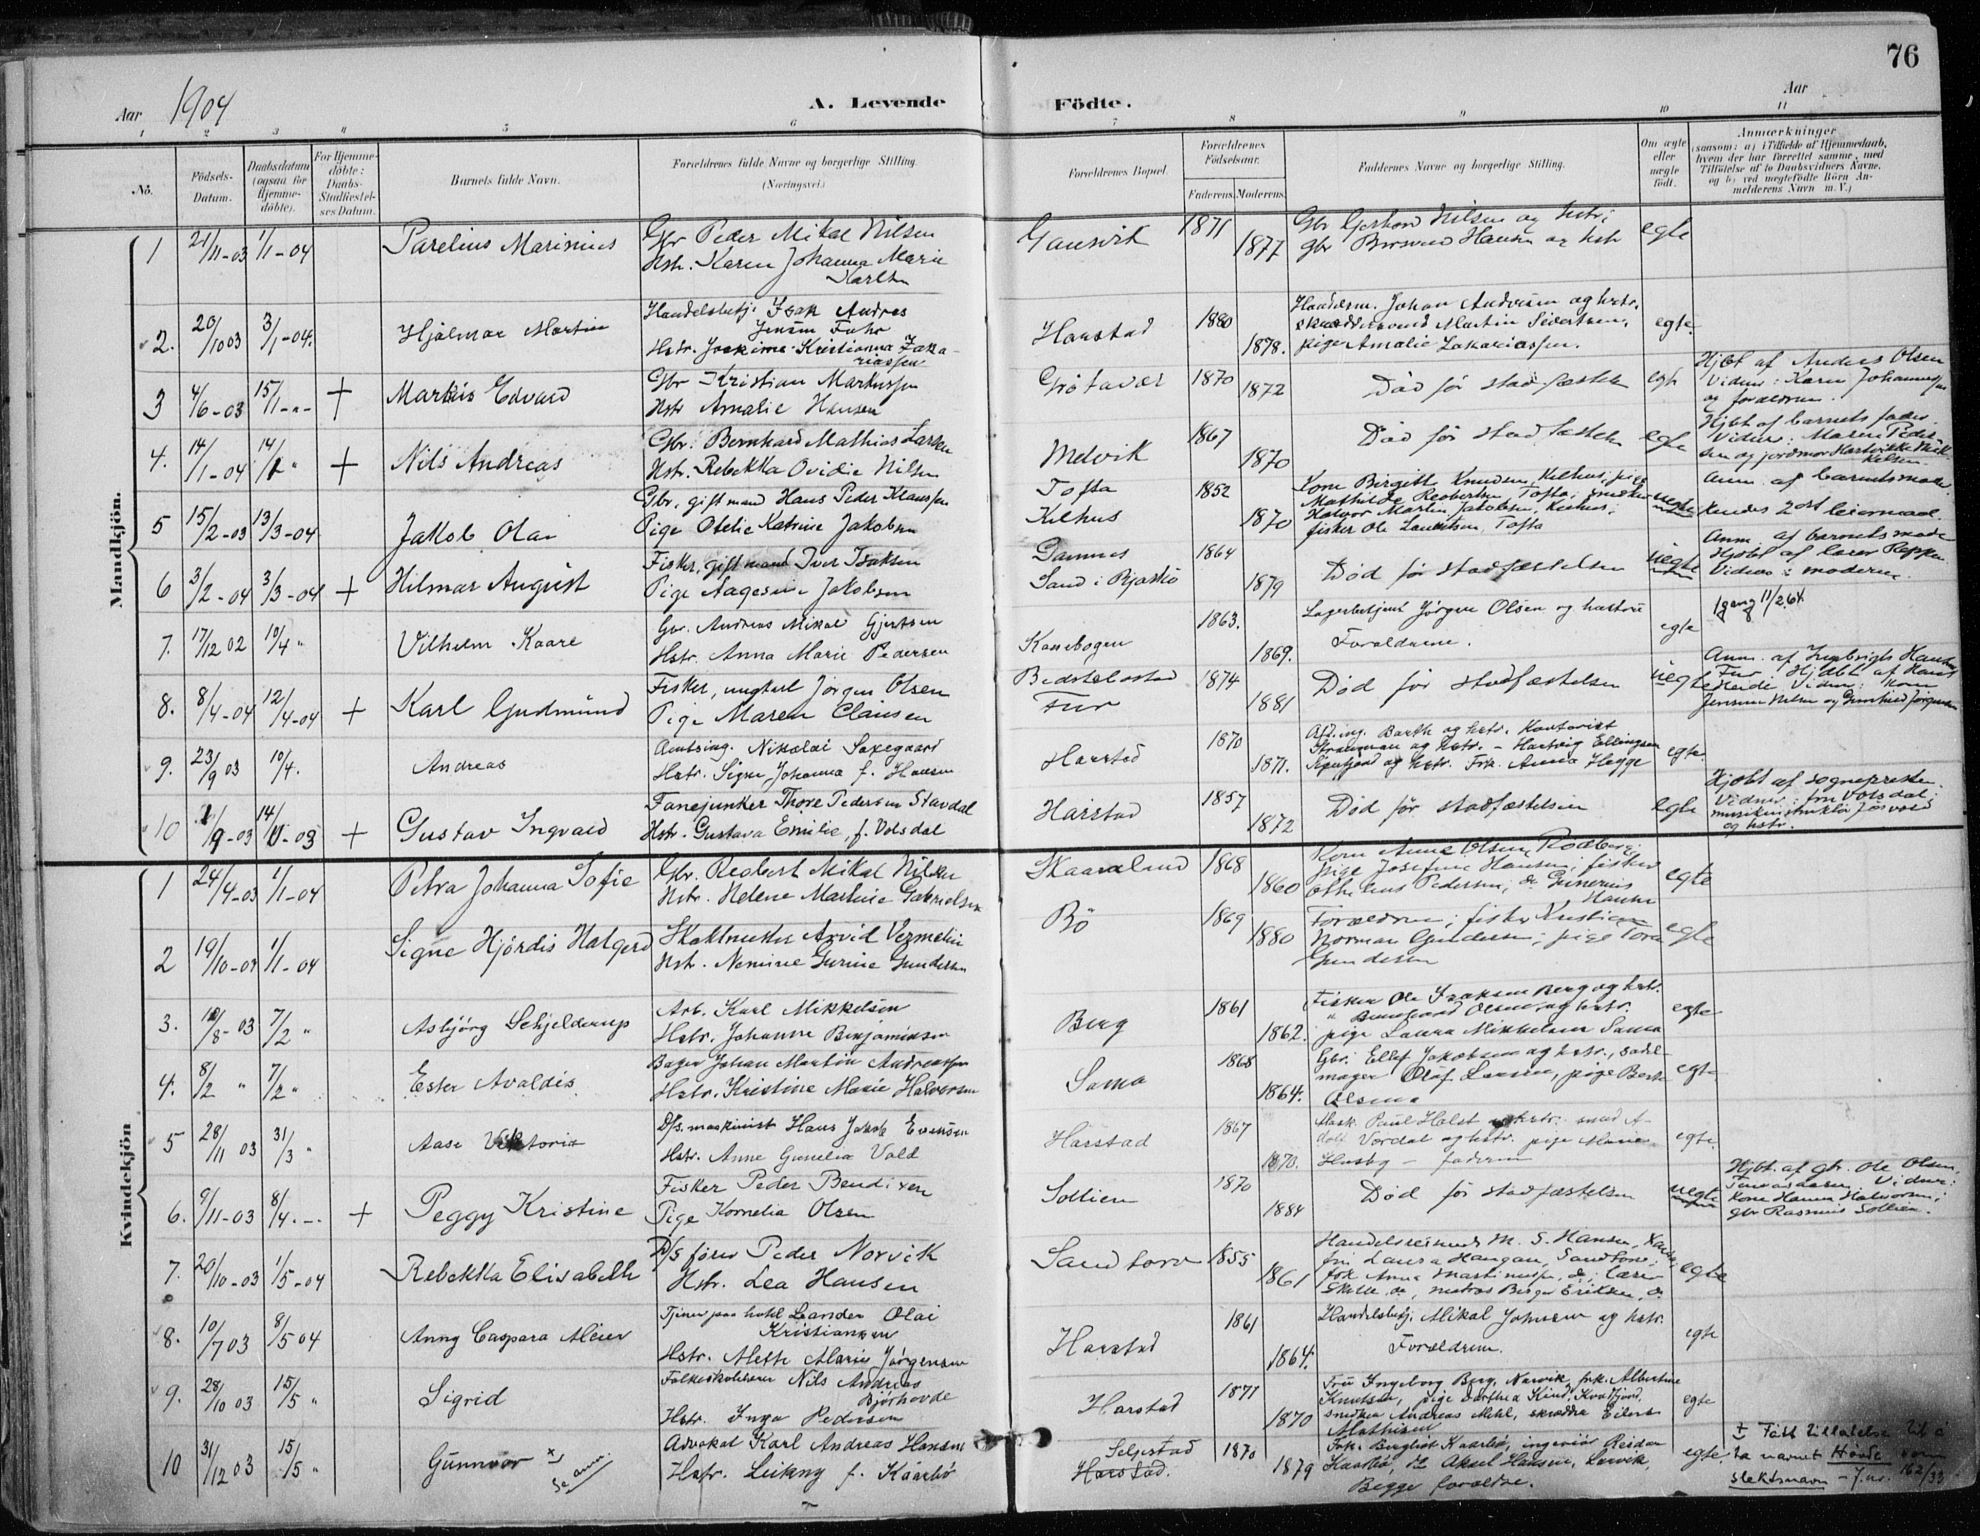 76
Aar 1904
A. Levende
Födte.
Aar
1 2 3 4 5 6 7 8 9 10 11
No.
Födsels-Datum.
Daabsdatum (ogsaa for Hjemme-döbte).
For Hjemme-döbte: Daabs-Stadfæstel-ses Datum.
Barnets fulde Navn.
Forældrenes fulde Navne og borgerlige Stilling. (Næringsvei.)
Forældrenes Bopæl.
Forældrenes Födselsaar.
Faderens. Moderens.
Faddernes Navne og borgerlige Stilling.
Om ægte eller uægte født.
Anmærkninger (saasom: a) i Tilfælde af Hjemmedaab, hvem der har forrettet samme, med Tilföielse af to Daabsvidners Navne, og b) ved uægtefödte Börn Anmelderens Navn m. V.)
Mandkjön.
1 21/11-03 1/1-04 Parelius Marinius
Gbr Peder Mikal Nilsen
Hstr. Karen Johanna Marie
Karlsen
Gausvik 1871 1877
Gbr Gerhard Nilsen og hstr;
gbr Hansen og hstr
egte
2. 20/10 03 3/1-04. Hjalmar Martin
Handelsbetj. Isak Andreas
Jensen Fuhr
Hstr. Joakime Kristianna Zaka-
riassen
Harstad 1880 1878.
Handelsm. Johan Andersen og hstr.
skræddersvend Martin Sivertsen,
pige Amalie Zakariassen.
egte
3 4/6-03 15/1-"- + Markus Edvard
Gbr Kristian Markussen
Hstr Amalie Hansen
Grötavær 1870 1872
Död för stadfæstelsen
egte
Hjbt af Anders Olsen
Vidner: Karen Johannessen
og forældrene.
4. 14/1-04 14/1 " + Nils Andreas
Gbr. Bernhard Mathias Larsen
Hstr. Rebekka Ovidie Nilsen
Melvik 1867 1870
Död för stadfæstelsen
egte
Hjbt af barnets fader.
Vidner: Maren Peder-
sen og jordmor Mik-
kelsen
5 15/2-03 13/3-04 Jakob Olai
Gbr, gift mand Hans Peder Klaussen
Pige Otelie Katrine Jakobsen
Tofta
Kilhus
1852 1870
Kone Birgitt Knudsen, Kilhus; pige
Mathilde Reobertsen, Tofta;
Halvor Martin Jakobsen, Kilhus;
fisker Ole Lauritsen, Tofta
uegte
Anm. af barnets mode
Kendes 2det leiermaal
6 3/2-04 3/3-04 + Hilmar August
Fisker, gift mand Iver Isaksen
Pige Aagesine Jakobsen
Sand i Bjarkö
1864 1879
Död för stadfæstelsen
uegte
Anm. af barnets mode
Hjbt af lærer Reppen
Vidnes: moderen.
7. 17/12 02 10/4 " Vilhelm Kaare
Gbr. Andreas Mikal Gjertsen
Hstr. Anna Marie Pedersen
Kanebogen 1863. 1869.
Lagerbetjent Jörgen Olsen og hustru
Forældrene.
egte
11/2 64
8. 8/4-04 12/4-04 + Karl Gudmund
Fisker, ungkarl Jörgen Olsen
Pige Maren Clausen
Fur
1874 1881
Död för stadfæstelsen
uegte
Anm. af Ingebrigt Hansen
Fur. Hjdbt af Hans
Vidner: Kone
9. 23/9 03 10/4. Andreas
Amtsing. Nikolai Saxegaard
Hstr. Signe Johanna f. Hansen
Harstad 1870 1871.
Afd.ing. Barth og hstr. Kontorist
og hstr. - Hartvig Ellingsen
og hstr. Frk. Anna Hegge
egte
10 1/9-03 14/ -03 + Gustav Ingvald
Fanejunker Thore Pedersen Stavdal
Hstr. Gustava Emilie, f. Volsdal
Harstad 1857 1872
Död för stadfæstelsen
egte
Hjdbt af sogneprest
Vidner: fru Volsdal;
musikinstruktör
og hstr.
Kvindekjön
1 24/4-03 1/1-04 Petra Johanna Sofie
Gbr. Reobert Mikal Nilsen
Hstr. Helene Martine Gabrielsen
Skaaneland 1868 1860
Kone Anne Olsen Rödberg;
pige Josefine Hansen; fisker
Pedersen; do Gunerius
Hansen
egte
2 19/10-03 1/1-04 Signe Hjördis Halgerd
Skotmaker Arvid Vezmelin
Hstr. Nemine Gurine Gundersen
Bö 1869 1880
Forældrene; fisker Kristian
Norman Gundersen; pige Tora
Gundersen
egte
3. 10/8-03 7/2 " Asbjörg Schjelderup
Arb. Karl Mikkelsen
Hstr. Johanne Benjaminsen
Berg 1861 1862.
Fisker Ole Isaksen Berg og hstr.
" Olsen og hstr.
pige Laura Mikkelsen Sama
egte
4. 8/2 " 7/2 " Ester Avaldis
Bager Johan Martin Andreassen
Hstr. Kristine Marie Halvorsen
Sama 1868 1864.
Gbr. Ellef Jakobsen og hstr., sadel-
mager Olaf Larsen, pige Berta
Olsen
egte
5 28/11 03 31/3 " Aase Viktoria
D/s. maskinist Hans Jakob Evensen
Hstr. Anne Gunelia Vold
Harstad 1867 1870.
Mask. Paul Holst og hstr. smed A-
dolf Verdal og hstr. pige Marie
Husby - faderen
egte.
6. 9/11-03 8/4.-. + Peggy Kristine
Fisker Peder Bendixen
Pige Kornelia Olsen
Sollien 1870 1884
Död för stadfæstelsen
uegte
Hjbt. af gbr. Ole Olsen,
Vidner:
Kone Hanna Halvorsen;
gbr Rasmus Sollien.
7. 20/10-03 1/5-04 Rebekka Elisabeth
D/s förer Peder Norvik
Hstr. Lea Hansen
Sandtorv 1855 1861
Handelsreisende M. S. Hansen,
fru Laura Haugan, Sandtorv;
frk Anna Martinussen, do; lærer
do, matros Birger Eriksen, do
egte
8. 10/7 03 8/5 04 Anny Caspara Meier
Tjener paa hotel Lander Olai
Kristiansen
Hstr. Mette Marie Jörgensen
Harstad 1861 1864.
Handelsbetj. Mikal Johnsen og hstr.
Forældrene.
egte
9. 28/10 03 15/5 " Sigrid
Folkeskolelærer Nils Andreas
Björhovde
Hstr. Inga Pedersen
Harstad 1871 1870
Fru Ingeborg Berg, Narvik, frk. Albertine
Knutsen, pige Dorthea Kind, Kvæfjord,
snedker Andreas Mehl, skrædder Eilert
Mathisen
egte
10 31/12 03 15/5 " Gunnvor +) se anm
Advokat Karl Andreas Hansen
Hstr. Leikny f. Kaarbö
Seljestad
Harstad.
1870 1879
Frk. Bergliot Kaarbö, ingeniör Reidar
Kaarbö, Aksel Hansen, Narvik,
Begge forældre.
egte,
+ Fått tillatelse til å
ta navnet Hovde som
slektsnavn - J.nr. 162/33